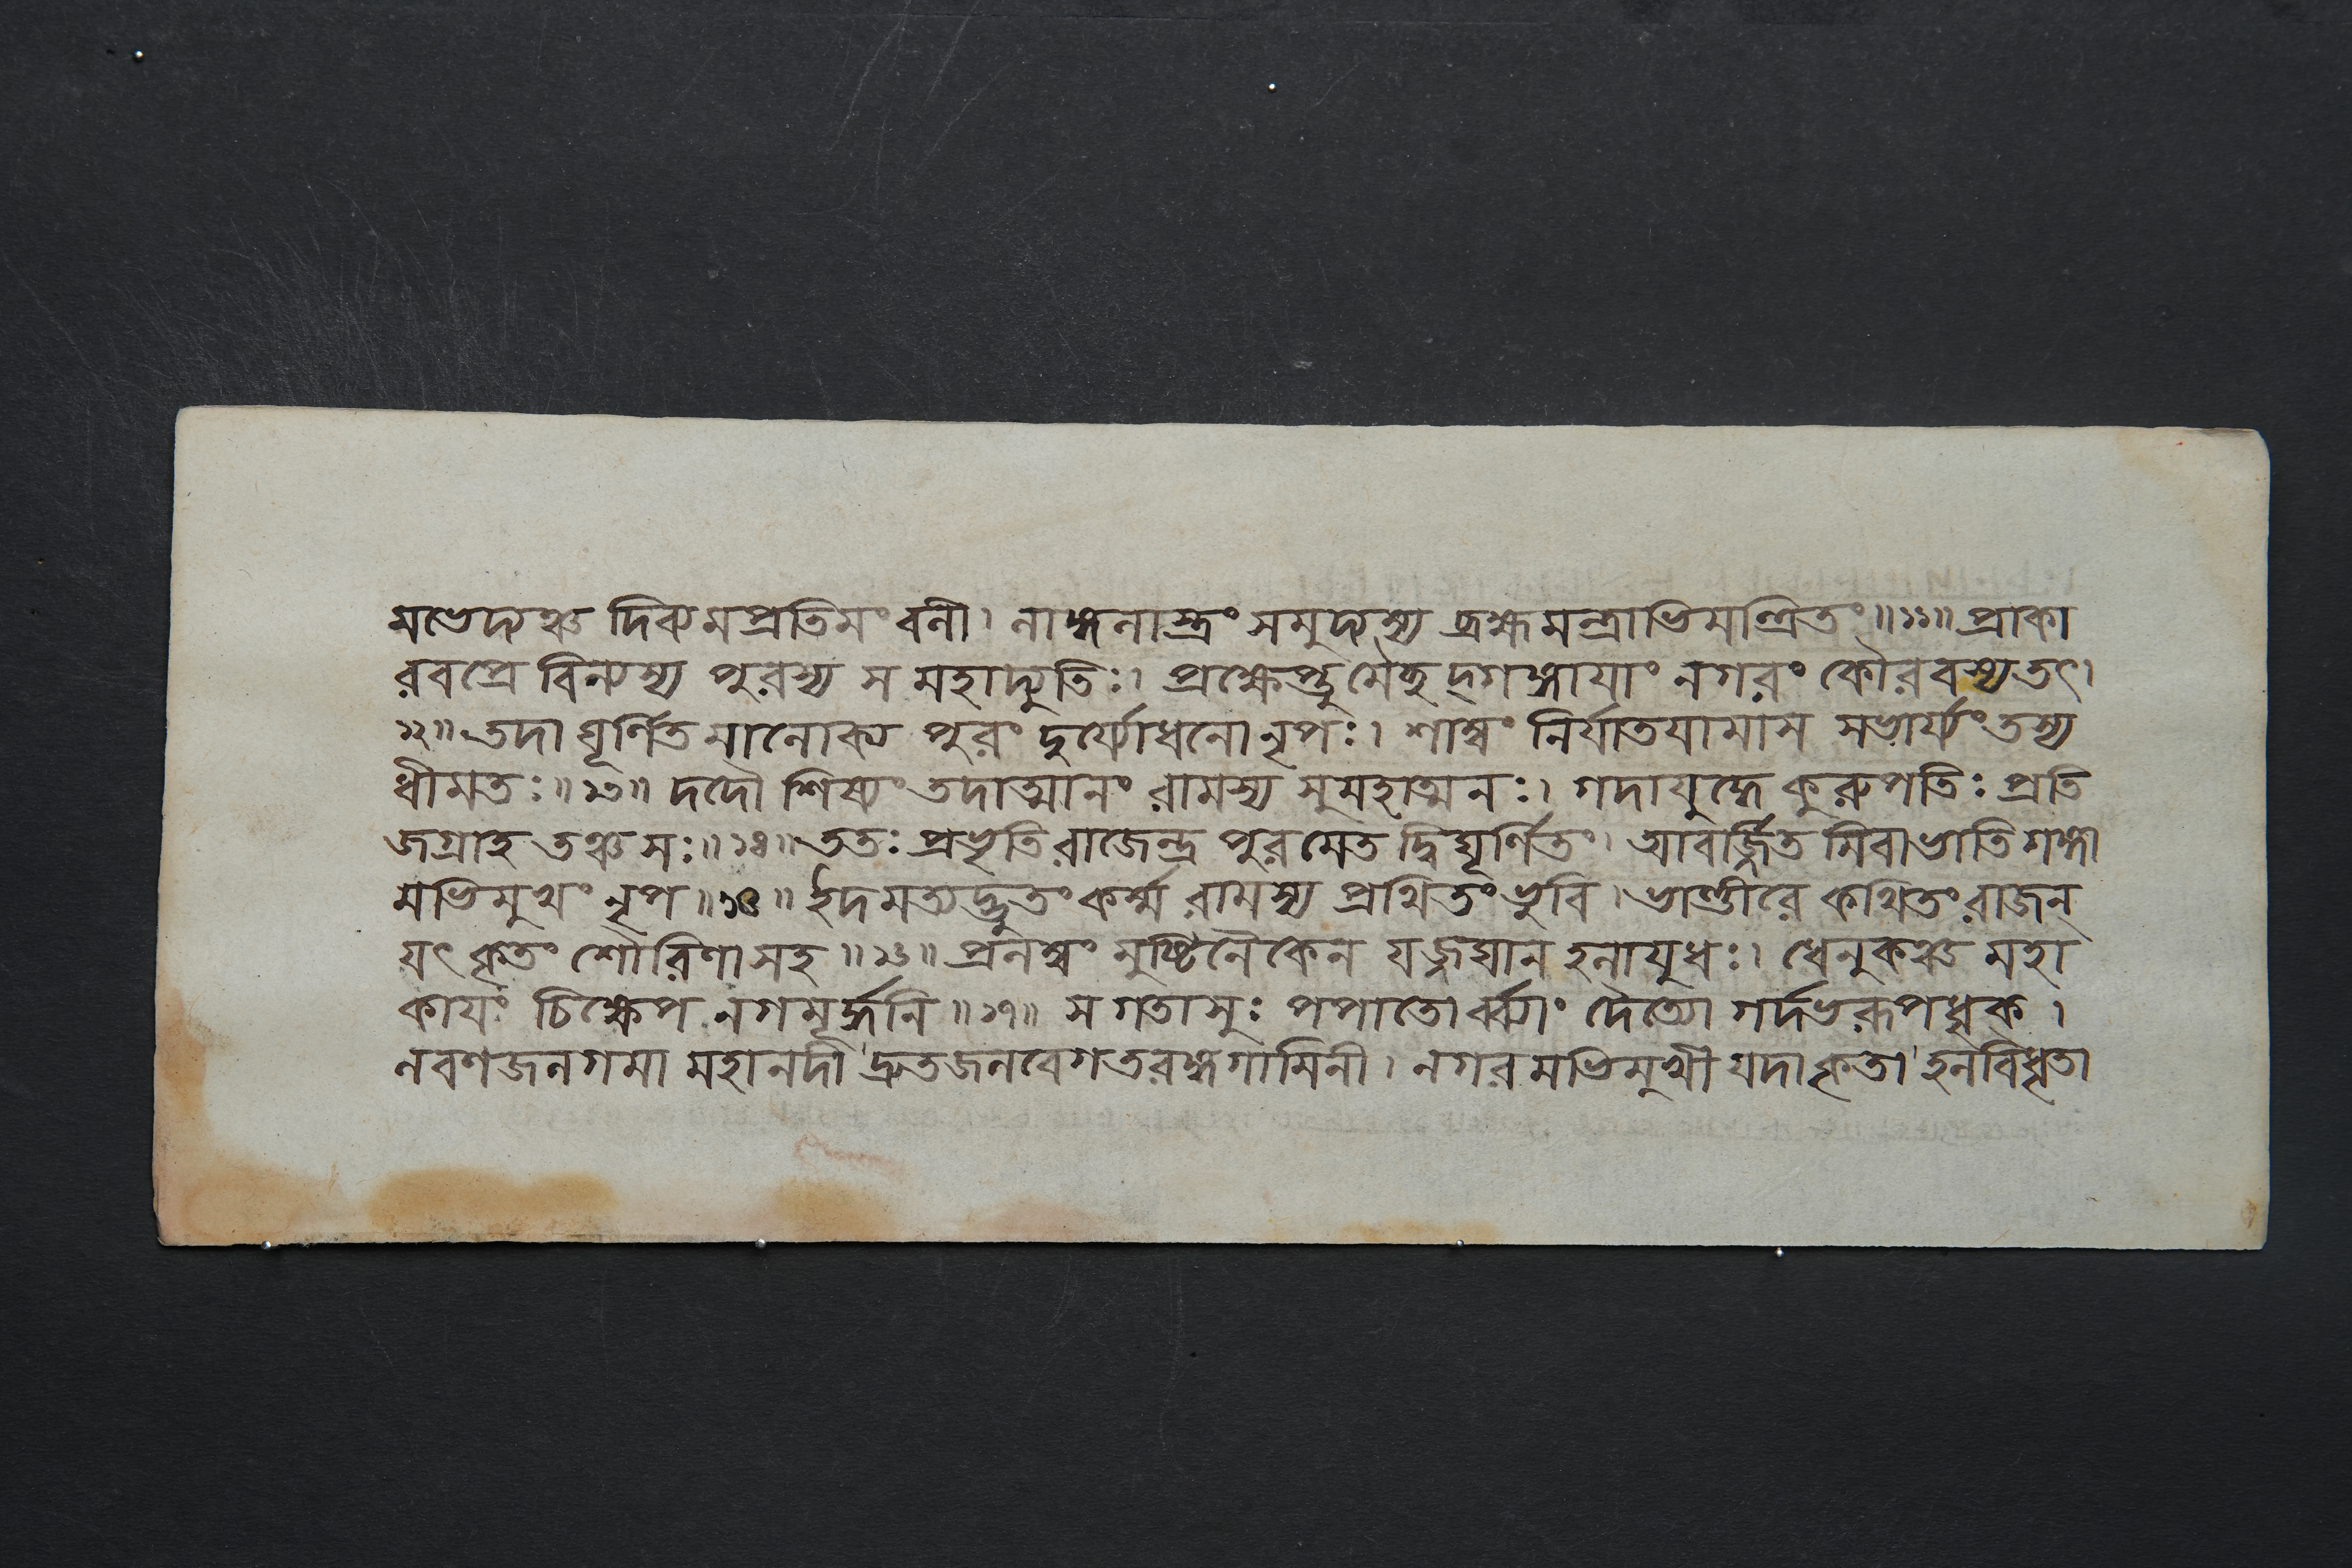 মভেদ্যঞ্চ দিব্যমপ্রতিমং বলী। লাঙ্গলাস্ত্রং সমুদ্যম্য ব্রহ্মমন্ত্রাভিমন্ত্রিতং॥১১॥ প্রাকা
রবপ্রে বিন্যস্য পুরস্য স মহাদ্যুতিঃ। প্রক্ষেপ্তুমৈচ্ছদ্গঙ্গায়াং নগরং কৌরবস্য তৎ।
১২॥ তদাঘূর্ণিতমালোক্য পুরং দুর্য্যোধনো নৃপঃ। শাম্বং নির্যাতয়ামাস সভার্য্যং তস্য
ধীমতঃ॥১৩॥ দদৌ শিষ্যং তদাত্মানং রামস্য সুমহাত্মনঃ। গদাযুদ্ধে কুরুপতিঃ প্রতি
জগ্রাহ তঞ্চ সঃ॥১৪॥ ততঃ প্রভৃতি রাজেন্দ্র পুরমেতদ্বিঘূর্ণিতং। আবর্জ্জিতমিবাভাতি গঙ্গা
মভিমুখং নৃপ॥১৫॥ ইদমত্যদ্ভুতং কর্ম্ম রামস্য প্রথিতং ভুবি। ভাণ্ডীরে কথিতং রাজন্
যৎ কৃতং শৌরিণা সহ॥১৬॥ প্রলম্বং মুষ্টিনৈকেন যজ্জঘান হলায়ুধঃ। ধেনুকঞ্চ মহা
কায়ং চিক্ষেপ নগমূর্দ্ধনি॥১৭॥ স গতাসুঃ পপাতোর্ব্ব্যাং দৈত্যো গর্দভরূপধৃক্।
লবণজলগমা মহানদী দ্রুতজলবেগতরঙ্গগামিনী। নগরমভিমুখী যদা কৃতা হলবিধৃতা